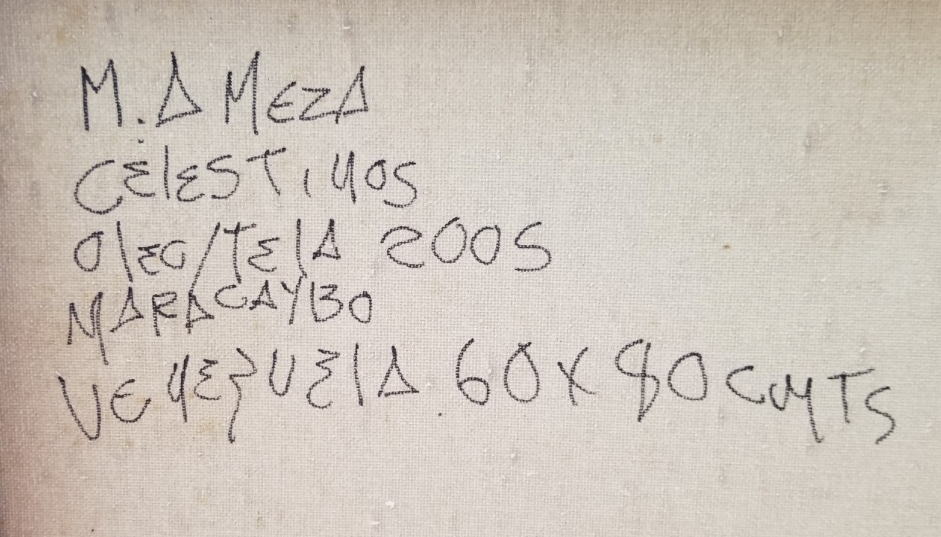 M. A MEZA
CELESTINOS
OLEO/TELA 2005
MARACAYBO
VENEZUELA. 60 X 80 CMTS